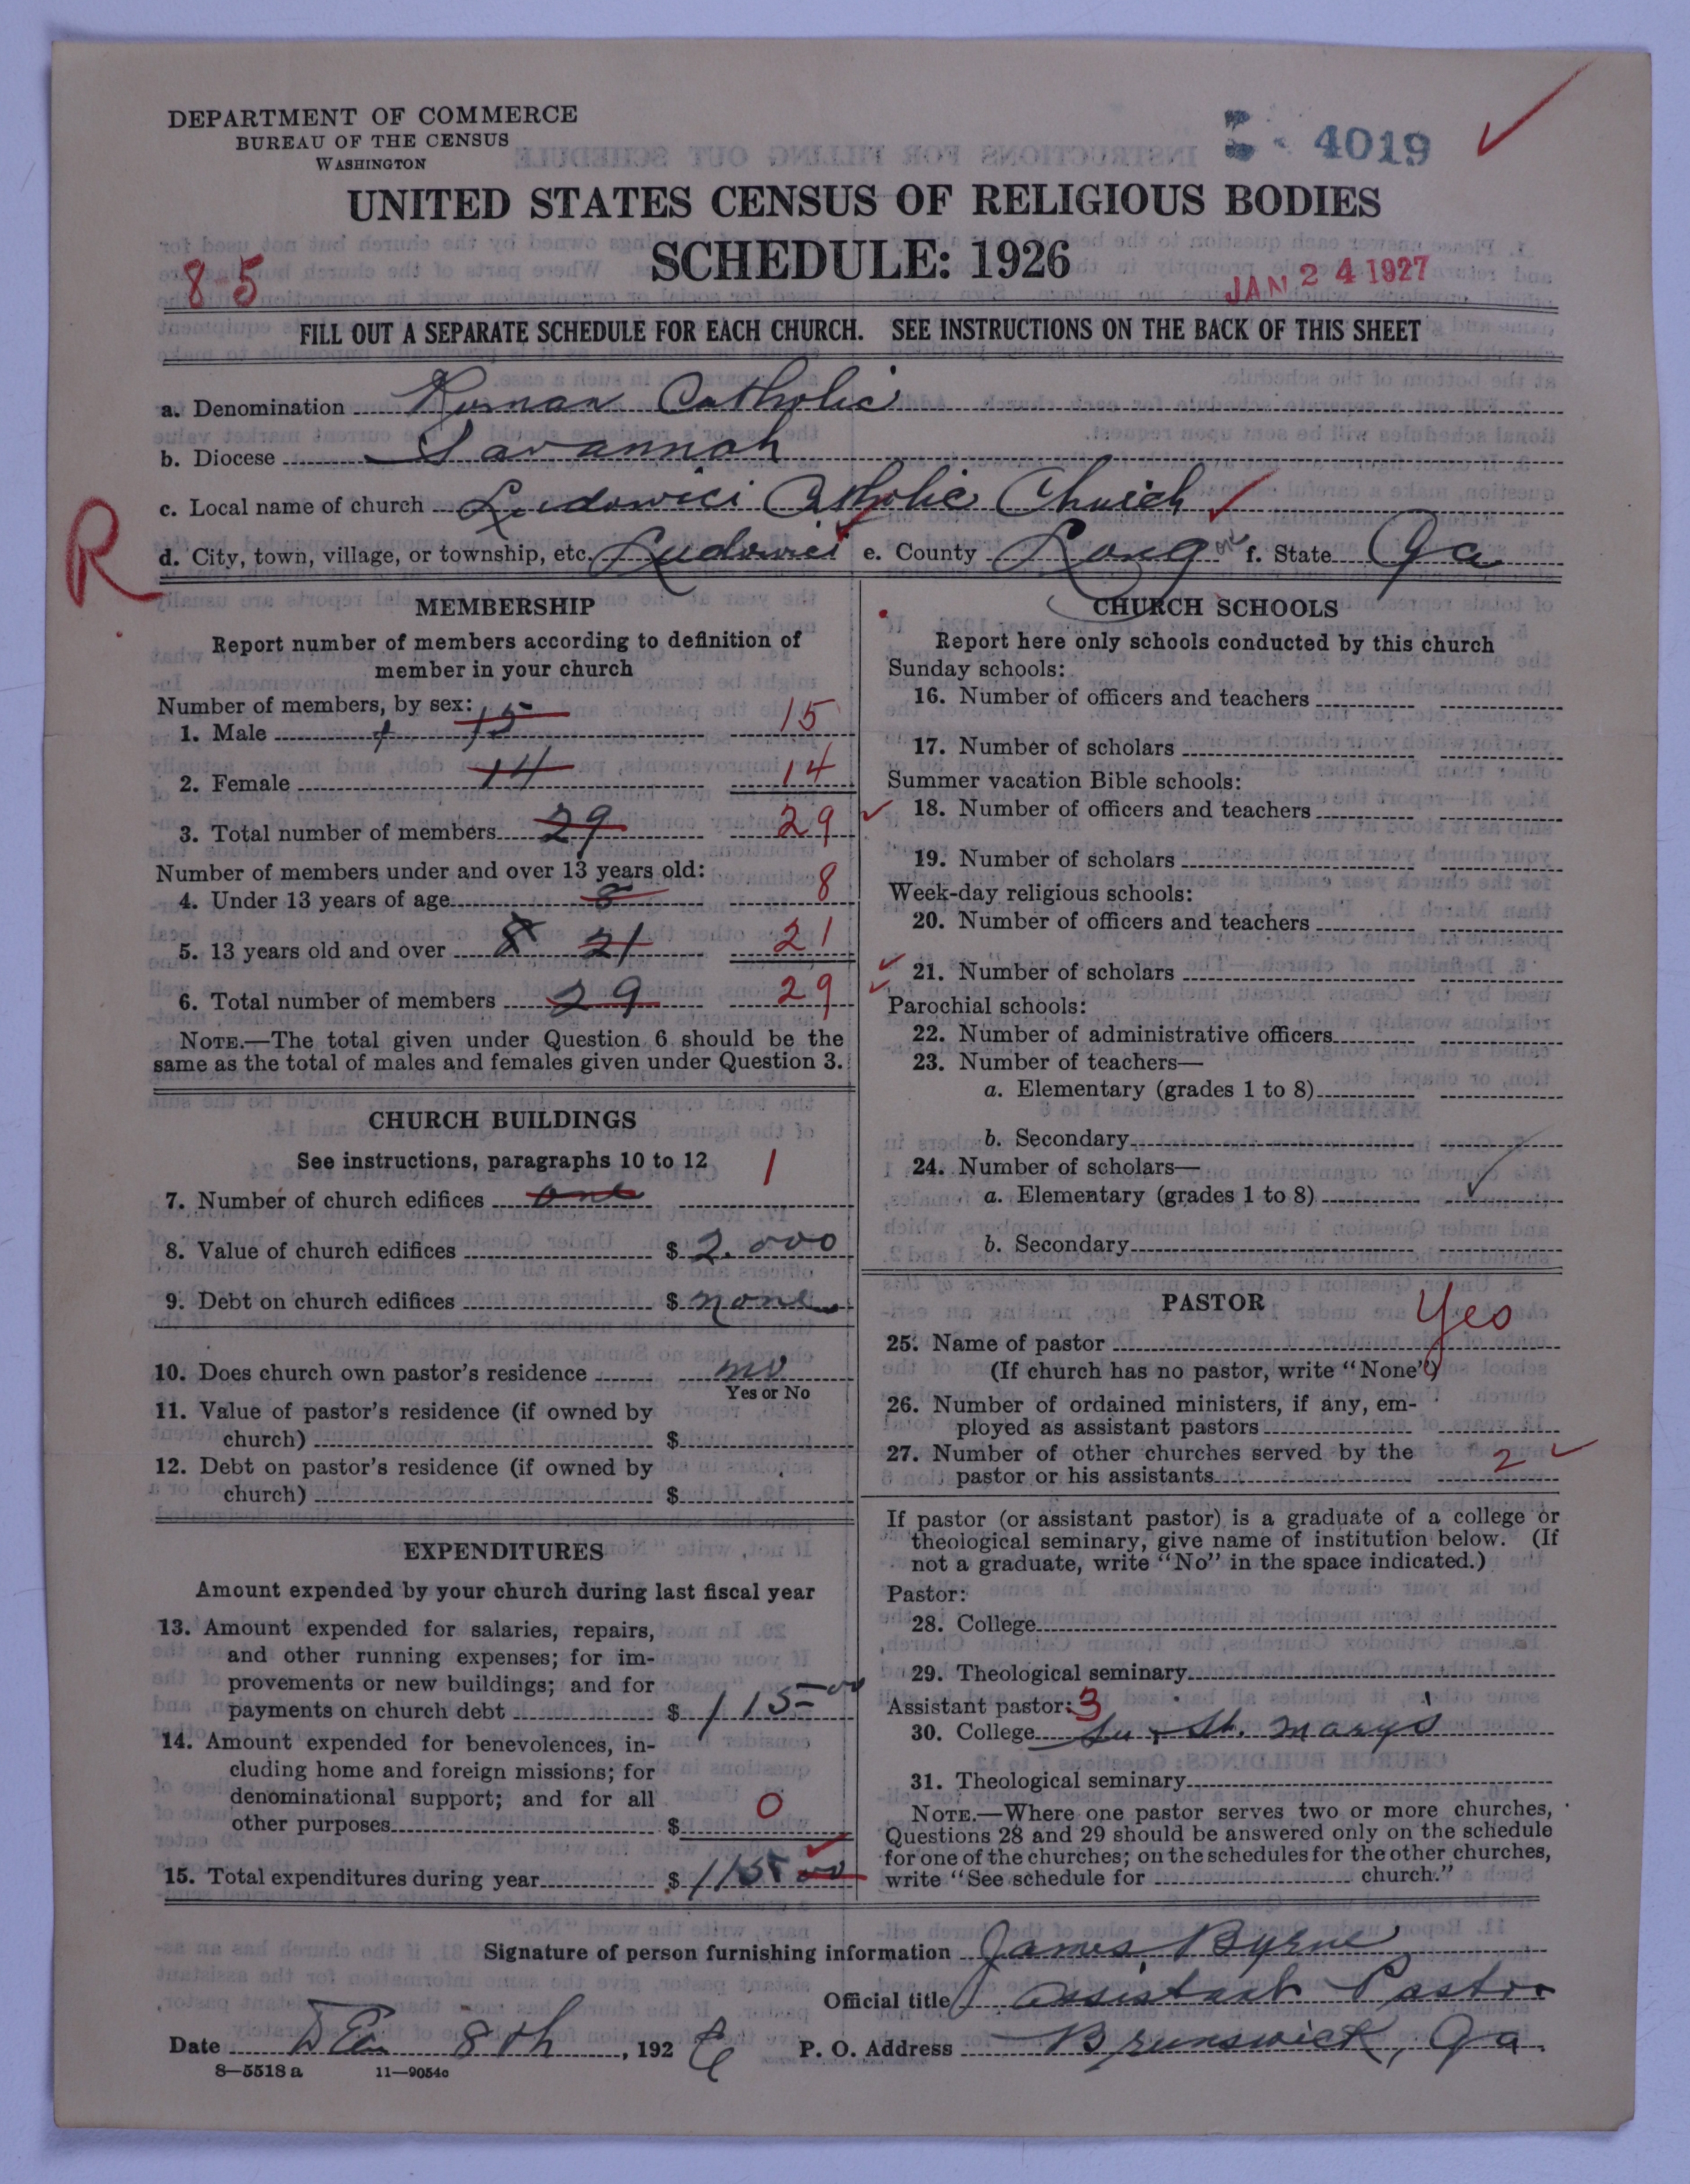 DEPARTMENT OF COMMERCE
BUREAU OF THE CENSUS
WASHINGTON
4019
UNITED STATES CENSUS OF RELIGIOUS BODIES
SCHEDULE: 1926
8-5
JAN 24 1927
FILL OUT A SEPARATE SCHEDULE FOR EACH CHURCH. SEE INSTRUCTIONS ON THE BACK OF THIS SHEET
a. Denomination Roman Catholic
b. Diocese Savannah
c. Local name of church Ludowici Catholic Church
R
d. City, town, village, or township, etc. Ludowici e. County Long f. State Ga
MEMBERSHIP
Report number of members according to definition of
member in your church
Number of members, by sex:
1. Male 15 15
2. Female 14 14
3. Total number of members 29 29
Number of members under and over 13 years old:
4. Under 13 years of age 8 8
5. 13 years old and over 8 21 21
6. Total number of members 29 29
NOTE.—The total given under Question 6 should be the
same as the total of males and females given under Question 3.
CHURCH BUILDINGS
See instructions, paragraphs 10 to 12
7. Number of church edifices one 1
8. Value of church edifices $ 2.000
9. Debt on church edifices $ none
10. Does church own pastor's residence no
Yes or No
11. Value of pastor's residence (if owned by
church) $
12. Debt on pastor's residence (if owned by
church) $
EXPENDITURES
Amount expended by your church during last fiscal year
13. Amount expended for salaries, repairs,
and other running expenses; for im-
provements or new buildings; and for
payments on church debt $ 115 00
14. Amount expended for benevolences, in-
cluding home and foreign missions; for
denominational support; and for all
other purposes $ 0
15. Total expenditures during year $ 115 00
CHURCH SCHOOLS
Report here only schools conducted by this church
Sunday schools:
16. Number of officers and teachers
17. Number of scholars
Summer vacation Bible schools:
18. Number of officers and teachers
19. Number of scholars
Week-day religious schools:
20. Number of officers and teachers
21. Number of scholars
Parochial schools:
22. Number of administrative officers
23. Number of teachers—
a. Elementary (grades 1 to 8)
b. Secondary
24. Number of scholars—
a. Elementary (grades 1 to 8)
b. Secondary
PASTOR
25. Name of pastor Yes
(If church has no pastor, write "None")
26. Number of ordained ministers, if any, em-
ployed as assistant pastors
27. Number of other churches served by the
pastor or his assistants 2
If pastor (or assistant pastor) is a graduate of a college or
theological seminary, give name of institution below. (If
not a graduate, write "No" in the space indicated.)
Pastor:
28. College
29. Theological seminary
Assistant pastor: 3
30. College St. Marys
31. Theological seminary
NOTE.—Where one pastor serves two or more churches,
Questions 28 and 29 should be answered only on the schedule
for one of the churches; on the schedules for the other churches,
write "See schedule for church."
Signature of person furnishing information James Byrne
Official title Assistant Pastor
Date Dec 8th, 1926 P. O. Address Brunswick, Ga.
8—5518 a 11—9054c